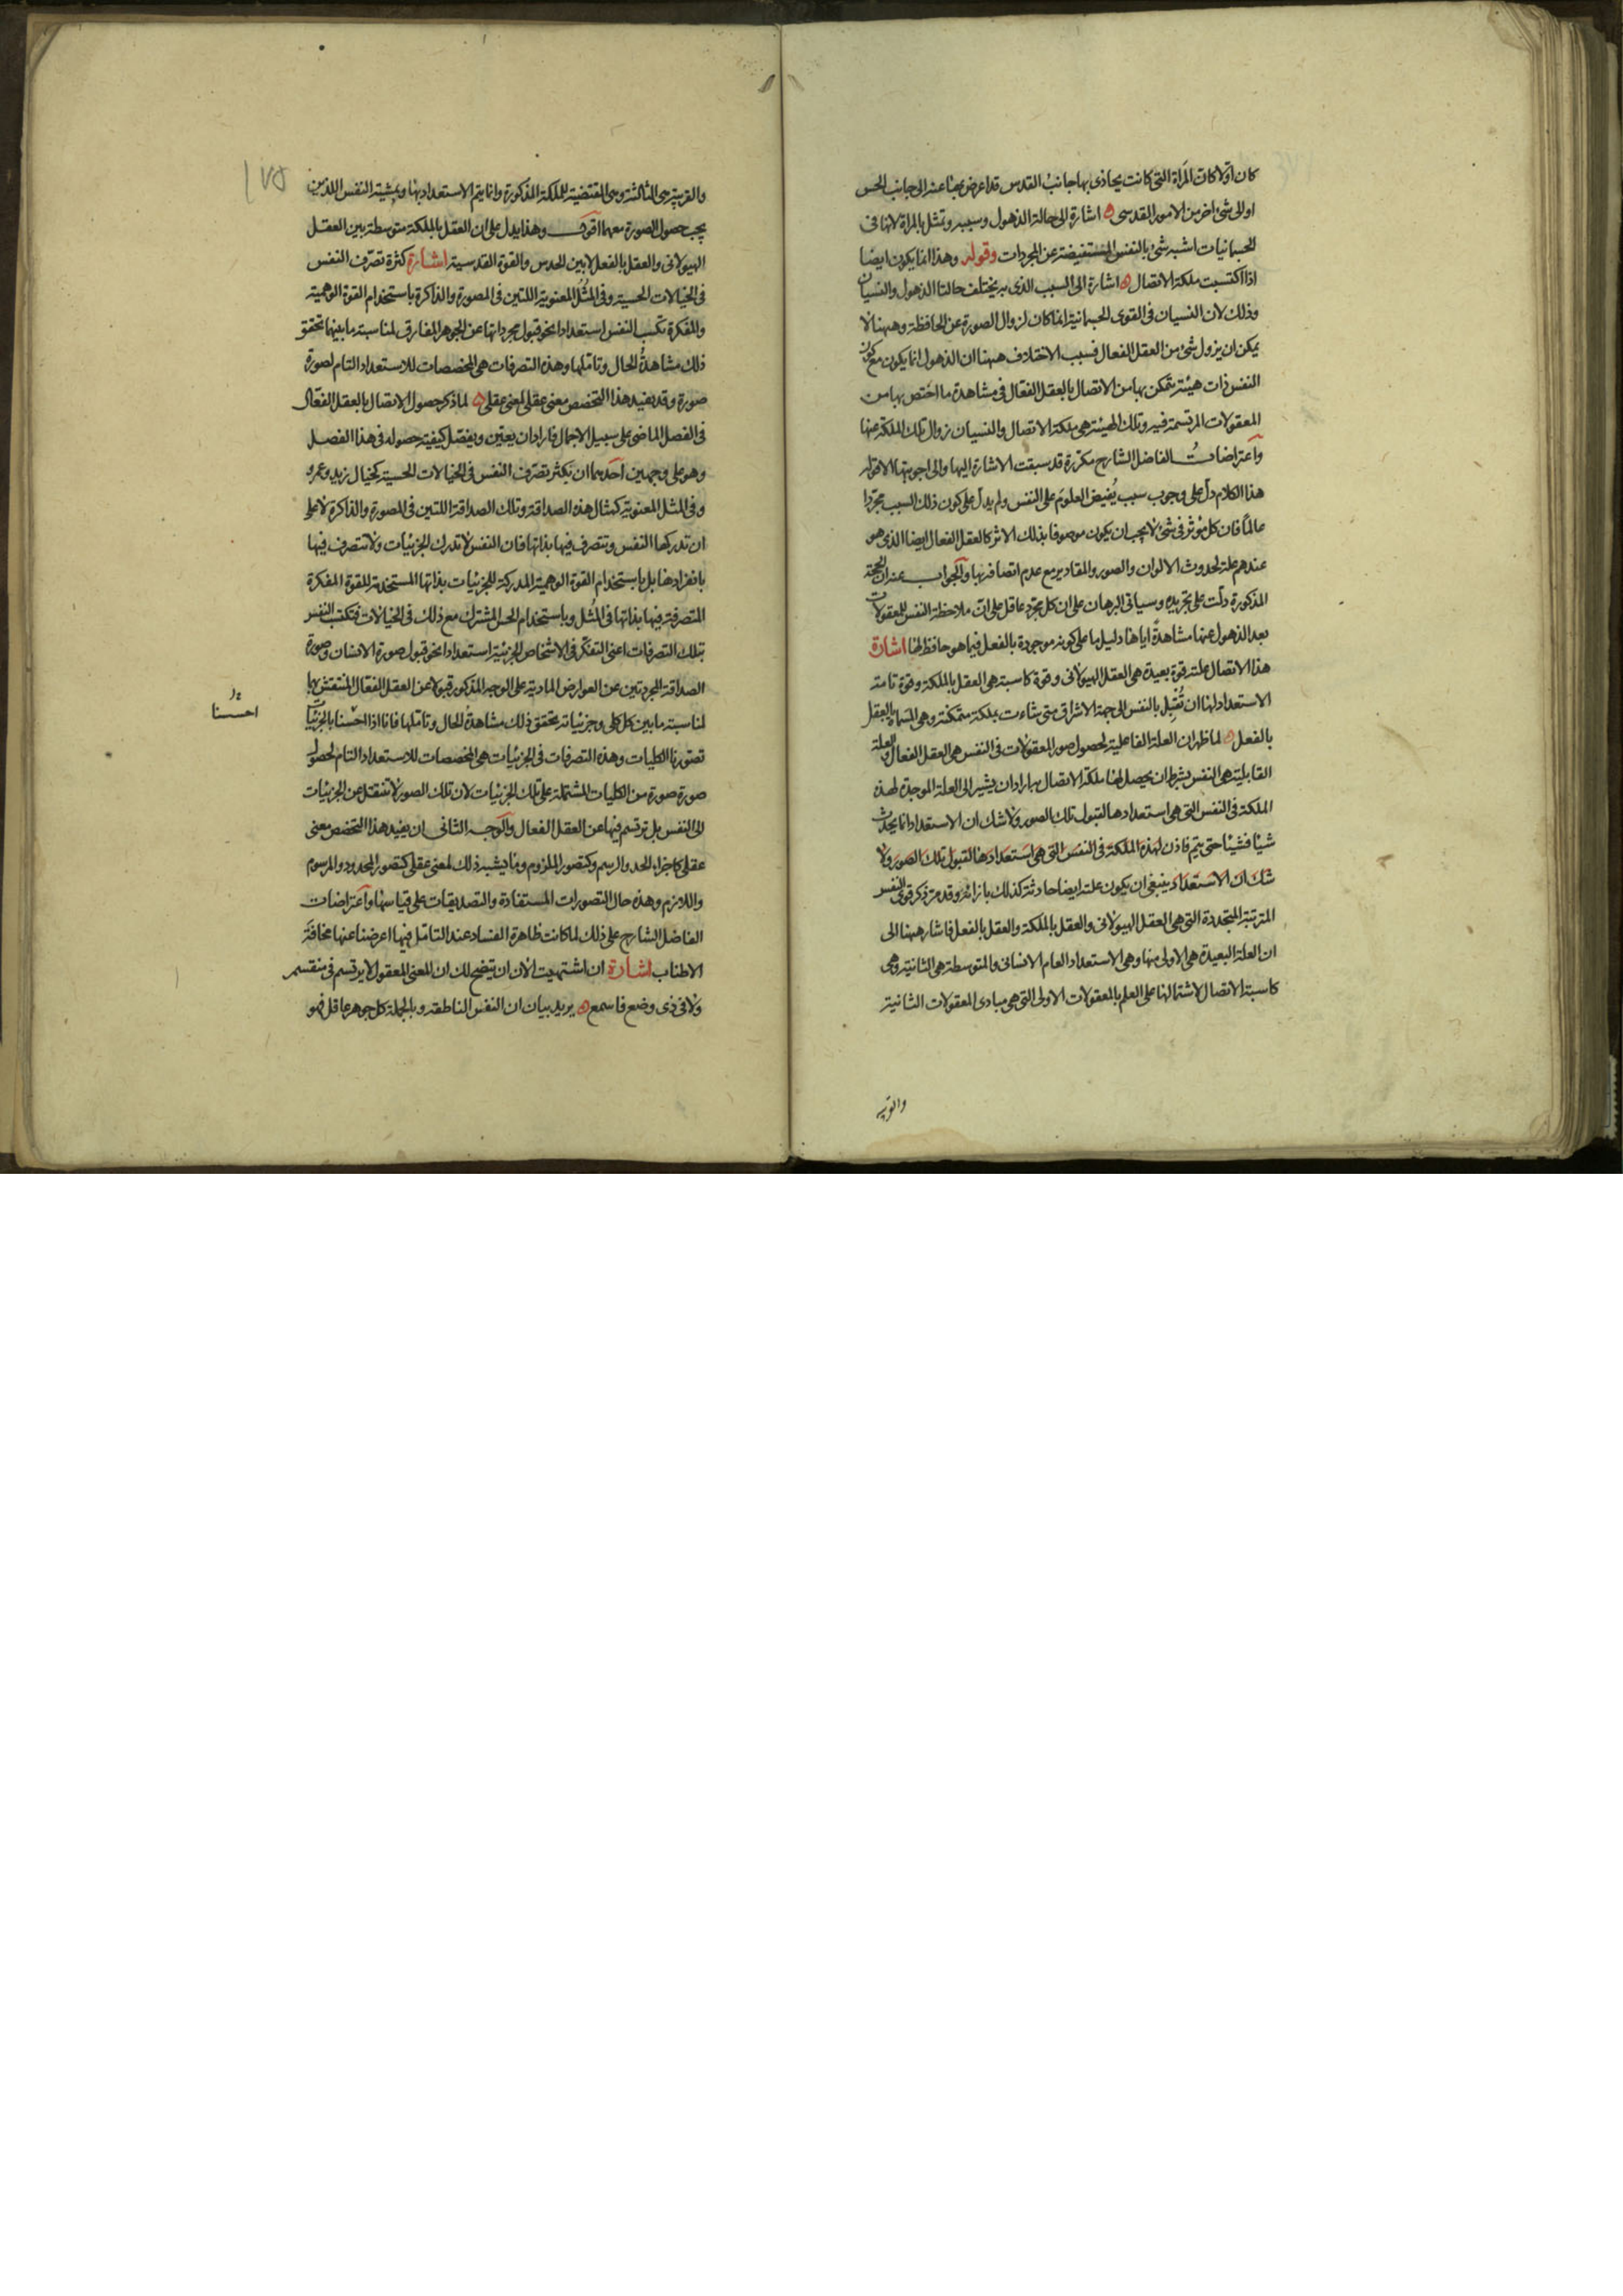 كان اولا كان المرآة التي كانت يحاذى بها جانب القدس قد اعرض بها عنه الى جانب الحس
او الى شئ اخر من الامور القدسى ه اشارة الى حالة الذهول وسببه وتمثل بالمراة لانها فى
الجسمانيات اشبه شئ بالنفس المستفيضة عن المجردات وقوله وهذا انما يكون ايضا
اذا اكتسبت ملكة الاتصال ه اشارة الى السبب الذى به يختلف حالتا الذهول والنسيان
وذلك لان النسيان فى القوى الجسمانية انما كان لزوال الصورة عن الحافظة وههنا لا
يمكن ان يزول شئ من العقل الفعال فسبب الاختلاف ههنا ان الذهول انما يكون مع كون
النفس ذات هيئة تتمكن بها من الاتصال بالعقل الفعّال فى مشاهدة ما اختص بها من
المعقولات المرتسمة فيه وتلك الهيئة هى ملكة الاتصال والنسيان زوال تلك الملكة عنها
واعتراضات الفاضل الشارح مكررة قد سبقت الاشارة اليها والى اجوبتها الا قوله
هذا الكلام دلّ على وجوب سبب يُفيض العلوم على النفس ولم يدل على كون ذلك السبب مجرّدا
عالمًا فان كل مؤثر فى شئ لا يجب ان يكون موصوفا بذلك الاثر كالعقل الفعال ايضا الذى هو
عندهم علة لحدوث الالوان والصور والمقادير مع عدم اتصافه بها والجواب عنه ان الحجة
المذكورة دلّت على تجريده وسياتى البرهان على ان كل مجرّد عاقل على انّ ملاحظة النفس للمعقولات
بعد الذهول عنها مشاهدةً اياها دليل ما على كونه موجودة بالفعل فيما هو حافظ لها اشارة
هذا الاتصال علته قوة بعيدة هى العقل الهيولانى وقوة كاسبة هى العقل بالملكة وقوة تامة
الاستعداد لها ان تُقبِل بالنفس الى جهة الاشراق متى شاءت بملكة متمكنة وهى المسماة بالعقل
بالفعل ه لما ظهر ان العلة الفاعلية لحصول صور المعقولات فى النفس هى العقل الفعال والعلة
القابلية هى النفس بشرط ان يحصل لها ملكة الاتصال به اراد ان يشير الى العلة الموجدة لهذه
الملكة فى النفس التى هى استعدادها لقبول تلك الصور ولا شك ان الاستعداد انما يحدث
شيئا فشيئا حتى يتم فاذن لهذه الملكة فى النفس التى هى استعدادها لقبول تلك الصور ولا
شك ان الاستعداد ينبغى ان يكون علته ايضا حادثة كذلك بازائه وقد مرّ ذكر قوى النفس
المترتبة المتجددة التى هى العقل الهيولانى والعقل بالملكة والعقل بالفعل فاشار ههنا الى
ان العلة البعيدة هى الاولى منها وهى الاستعداد العام الانسانى والمتوسطة هى الثانية وهى
كاسبة الاتصال لاشتمالها على العلم بالمعقولات الاولى التى هى مبادى المعقولات الثانية
والقريبة هى الثالثة وهى المقتضية للملكة المذكورة وانما يتم الاستعداد بها وبمشية النفس اللذين
يجب حصول الصورة معهما اقول وهذا يدل على ان العقل بالملكة متوسطة بين العقل
الهيولانى والعقل بالفعل لا بين الحدس والقوة القدسية اشارة كثرة تصرّف النفس
فى الخيالات الحسية وفى المُثُل المعنوية اللتين فى المصورة والذاكرة باستخدام القوة الوهمية
والمفكرة تكسب النفس استعدادا نحو قبول مجرداتها عن الجوهر المفارق لمناسبة ما بينهما تحقق
ذلك مشاهدةُ الحال وتاملها وهذه التصرفات هى المخصصات للاستعداد التام لصورة
صورة وقد يفيد هذا التخصص معنى عقلى لمعنى عقلى ه لما ذكر حصول الاتصال بالعقل الفعّال
فى الفصل الماضى على سبيل الاجمال فاراد ان يعيّن ويفصّل كيفية حصوله فى هذا الفصل
وهو على وجهين احدهما ان يكثر تصرّف النفس فى الخيالات الحسية كخيال زيد وعمرو
وفى المثل المعنوية كمثال هذه الصداقة وتلك الصداقة اللتين فى المصورة والذاكرة لا على
ان تدركها النفس وتتصرف فيها بذاتها فان النفس لا تدرك الجزئيات ولا تتصرف فيها
بانفرادها بل باستخدام القوة الوهمية المدركة للجزئيات بذاتها المستخدمة للقوة المفكرة
المتصرفة فيها بذاتها فى المُثُل وباستخدام الحس المشترك مع ذلك فى الخيالات فتكتسب النفس
بتلك التصرفات اعنى التفكّر فى الاشخاص الجزئية استعدادا نحو قبول صورة الانسان وصورة
الصداقة المجردتين عن العوارض المادية على الوجه المذكور قبولا عن العقل الفعّال المنتقش بها
لمناسبة ما بين كل كلى وجزئياته تحقق ذلك مشاهدةُ الحال وتاملها فانا اذا احسنا بالجزئيات
احسسنا
تصورنا الكليات وهذه التصرفات فى الجزئيات هى المخصصات للاستعداد التام لحصول
صورة صورة من الكليات المشتملة على تلك الجزئيات لان تلك الصور لا تنتقل عن الجزئيات
الى النفس بل ترتسم فيها عن العقل الفعال والوجه الثانى ان يفيد هذا التخصص معنى
عقلى كاجزاء الحد والرسم وكتصور الملزوم وما يشبه ذلك لمعنى عقلى كتصور المحدود والمرسوم
واللازم وهذه حال التصورات المستفادة والتصديقات على قياسها واعتراضات
الفاضل الشارح على ذلك لما كانت ظاهرة الفساد عند التامّل فيها اعرضنا عنها مخافة
الاطناب اشارة ان اشتهيت الان ان يتضح لك ان المعنى المعقول لا يرتسم فى منقسم
ولا فى ذى وضع فاسمع ه يريد بيان ان النفس الناطقة وبالجملة كل جوهر عاقل فهو